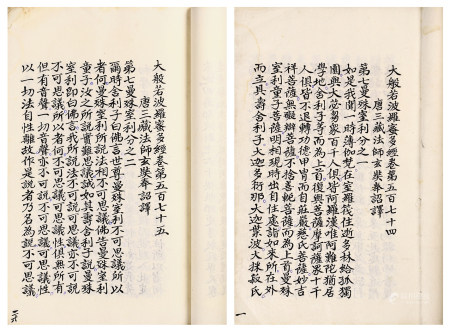 大般若波羅蜜多經卷第五百七十四
唐三藏法師玄奘奉詔譯
第七曼殊室利分之一
如是我聞一時薄伽梵在室羅筏住逝多林給孤獨
園與大苾芻眾百千人俱皆阿羅漢唯阿難陀猶居
學地舍利子等而為上首復與菩薩摩訶薩眾十千
人俱皆不退轉功德甲冑而自莊嚴慈氏菩薩妙吉
祥菩薩無礙辯菩薩不捨善軛菩薩而為上首曼殊
室利童子菩薩明相現時出自住處詣如來所在外
而立具壽舍利子大迦多衍那大迦葉波大採菽氏
一
大般若波羅蜜多經卷第五百七十五
唐三藏法師玄奘奉詔譯
第七曼殊室利分之二
爾時舍利子白佛言世尊曼殊室利不可思議所以
者何曼殊室利所說法相不可思議佛告曼殊室利
童子汝之所說實難思議誠如具壽舍利子說曼殊
室利即白佛言我所說法不可說可思議亦不可說
不可思議所以者何不可思議可思議性俱無所有
但有音聲一切音聲亦不可說不可思議可思議性
以一切法自性離故作是說者乃名為說不可思議